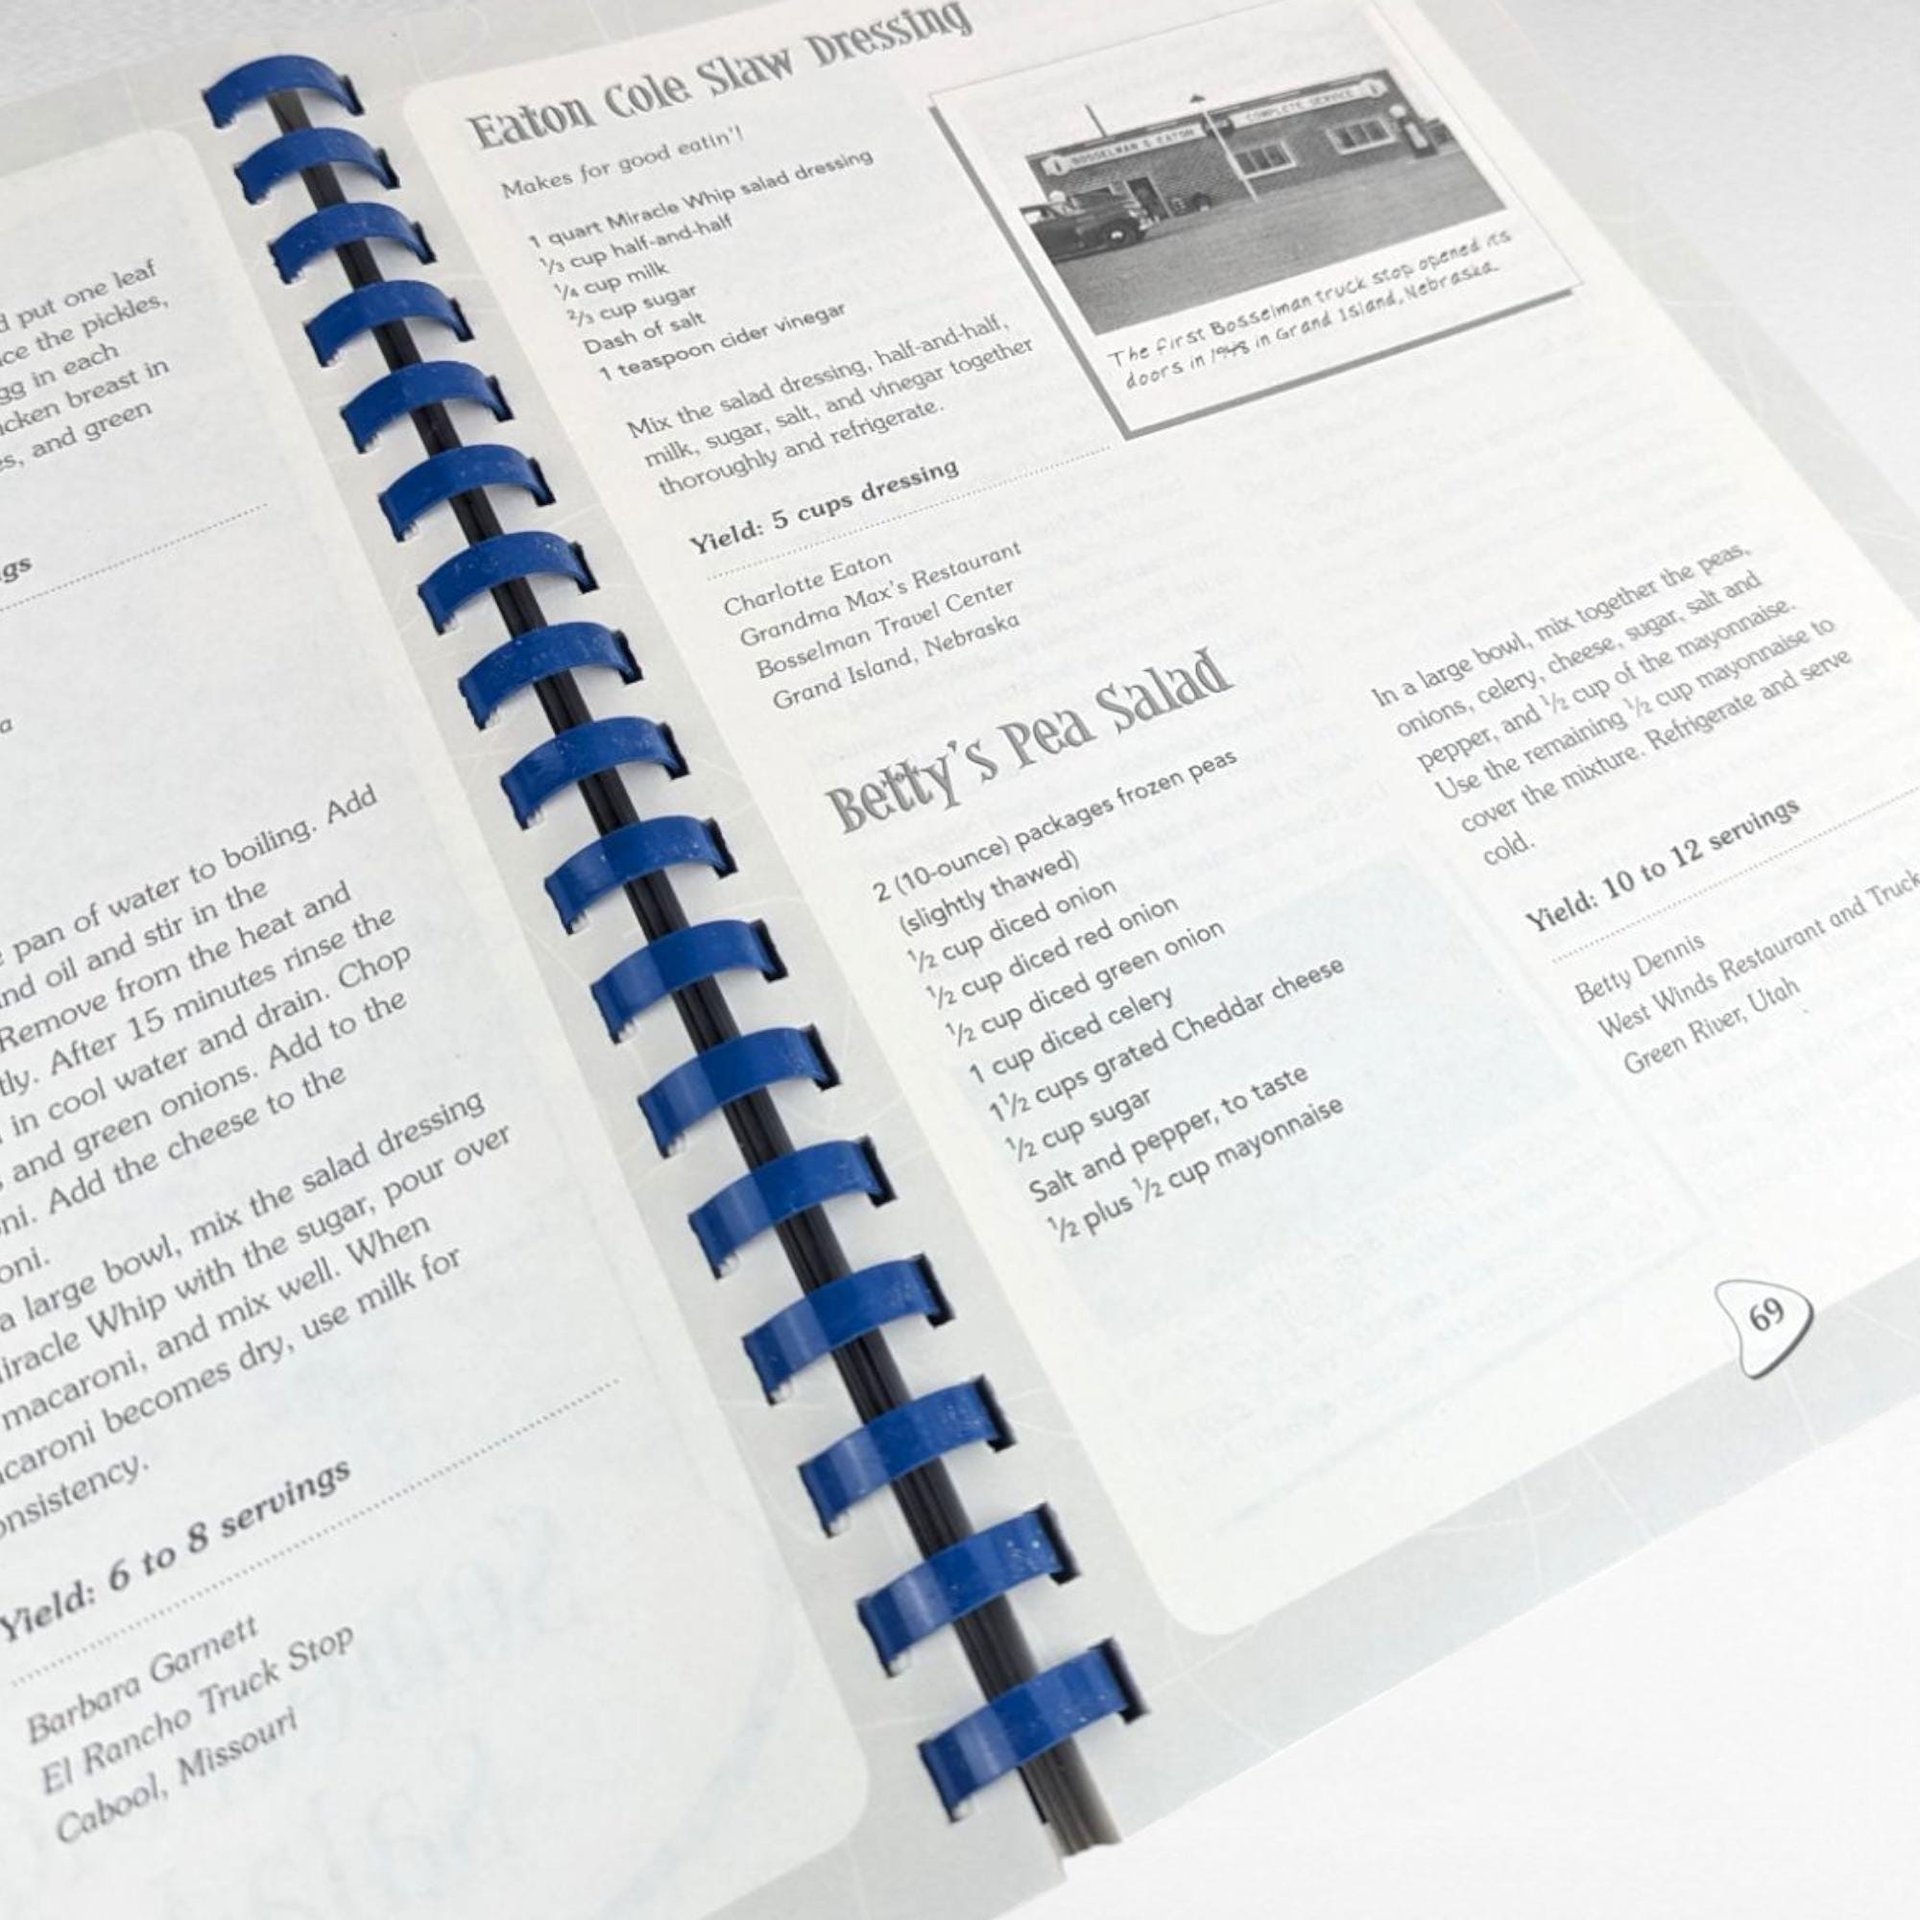 d put one leaf
ce the pickles,
gg in each
cken breast in
es, and green
gs
a
pan of water to boiling. Add
nd oil and stir in the
Remove from the heat and
tly. After 15 minutes rinse the
in cool water and drain. Chop
s and green onions. Add to the
oni. Add the cheese to the
oni.
a large bowl, mix the salad dressing
liracle Whip with the sugar, pour over
macaroni, and mix well. When
caroni becomes dry, use milk for
onsistency.
Yield: 6 to 8 servings
Barbara Garnett
El Rancho Truck Stop
Cabool, Missouri
Eaton Cole Slaw Dressing
Makes for good eatin'!
1 quart Miracle Whip salad dressing
⅓ cup half-and-half
¼ cup milk
⅔ cup sugar
Dash of salt
1 teaspoon cider vinegar
Mix the salad dressing, half-and-half,
milk, sugar, salt, and vinegar together
thoroughly and refrigerate.
Yield: 5 cups dressing
Charlotte Eaton
Grandma Max's Restaurant
Bosselman Travel Center
Grand Island, Nebraska
BOSSELMAN & EATON
COMPLETE SERVICE
The first Bosselman truck stop opened its
doors in 1948 in Grand Island, Nebraska.
Betty's Pea Salad
2 (10-ounce) packages frozen peas
(slightly thawed)
½ cup diced onion
½ cup diced red onion
½ cup diced green onion
1 cup diced celery
1½ cups grated Cheddar cheese
½ cup sugar
Salt and pepper, to taste
½ plus ½ cup mayonnaise
In a large bowl, mix together the peas,
onions, celery, cheese, sugar, salt and
pepper, and ½ cup of the mayonnaise.
Use the remaining ½ cup mayonnaise to
cover the mixture. Refrigerate and serve
cold.
Yield: 10 to 12 servings
Betty Dennis
West Winds Restaurant and Truck
Green River, Utah
69